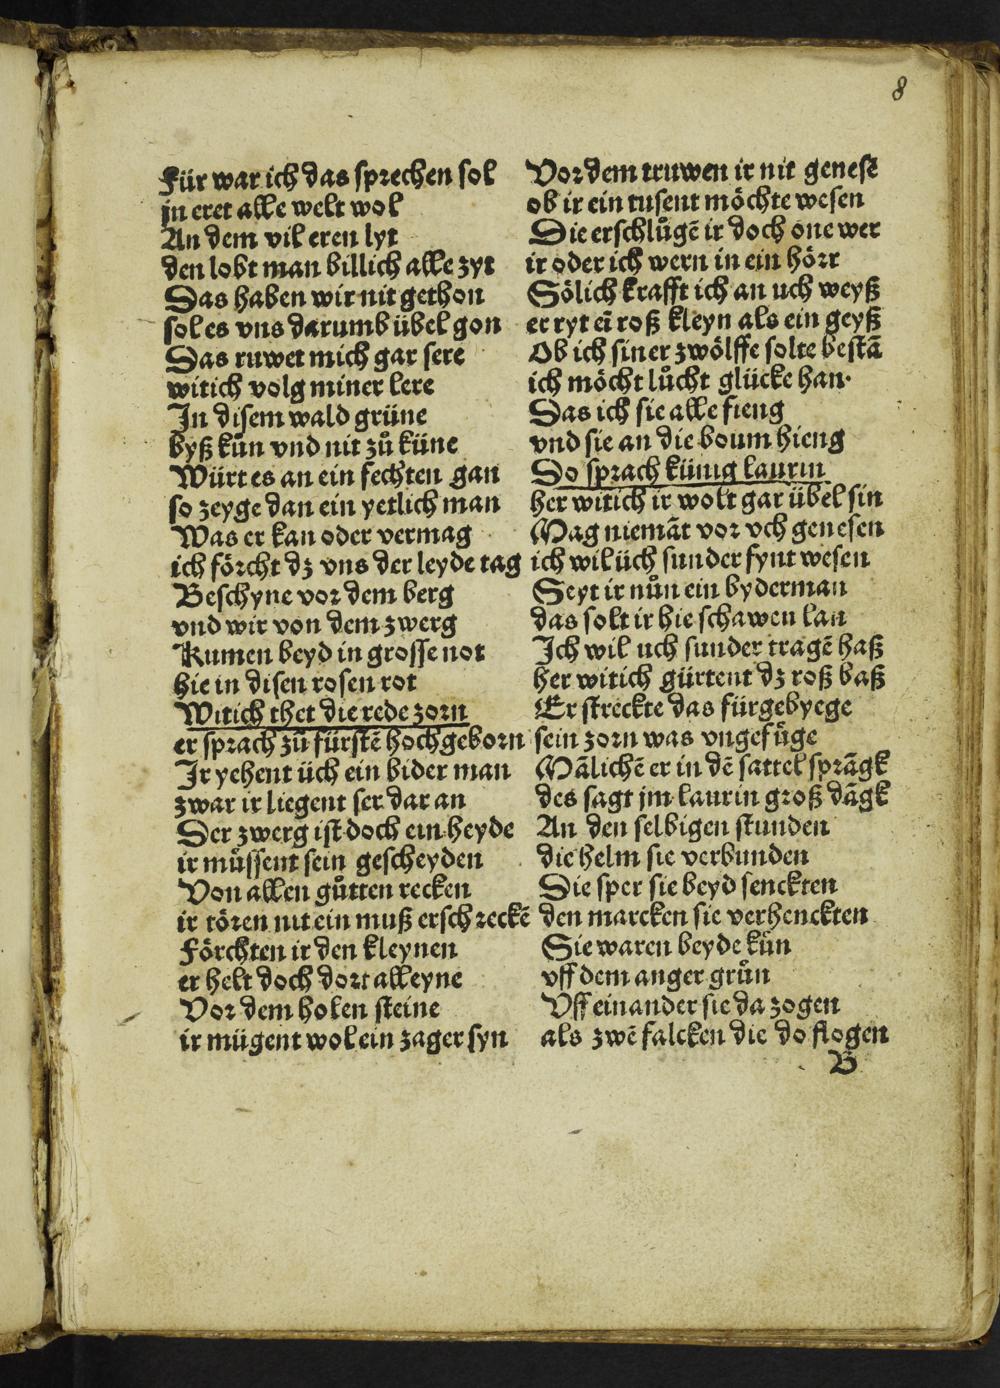 8
Für war ich das sprechen sol
jn eret alle welt wol
An dem vil eren lyt
den lobt man billich alle zyt
Das haben wir nit gethon
sol es vns darumb übel gon
Das ruwet mich gar sere
witich volg miner lere
In disem wald grüne
byß kůn vnd nit zů küne
Würt es an ein fechten gan
so zeyge dan ein yetlich man
Was er kan oder vermag
ich förcht dz vns der leyde tag
Beschyne vor dem berg
vnd wir von dem zwerg
Kumen beyd in grosse not
hie in disen rosen rot
Witich thet die rede zorn
er sprach zů fürstē hochgeborn
Ir yehent üch ein bider man
zwar ir liegent ser dar an
Der zwerg ist doch ein heyde
ir müssent sein gescheyden
Von allen gůtten recken
ir tören nit ein muß erschreckē
Förchten ir den kleynen
er helt doch dort alleyne
Vor dem holen steine
ir mügent wol ein zager syn
Vor dem truwen ir nit genesē
ob ir ein tusent möchte wesen
Die erschlůgē ir doch one wer
ir oder ich wern in ein hörr
Sölich krafft ich an uch weyß
er ryt eī roß kleyn als ein geyß
Ob ich siner zwölffe solte bestā
ich möcht lůcht glücke han·
Das ich sie alle fieng
vnd sie an die boum hieng
Do sprach künig laurin
her witich ir wolt gar übel sin
Mag niemāt vor vch genesen
ich wil üch sunder fynt wesen
Seyt ir nůn ein byderman
das solt ir hie schawen lan
Ich wil uch sunder tragē haß
her witich gürtent dz roß baß
Er streckte das fürgebyege
sein zorn was vngefůge
Mālichē er in dē sattel sprāgk
des sagt jm laurin groß dāgk
An den selbigen stunden
die helm sie verbunden
Die sper sie beyd senckten
den marcken sie verhenckten
Sie waren beyde kůn
vff dem anger grůn
Vff einander sie da zogen
als zwē falcken die do flogen
B